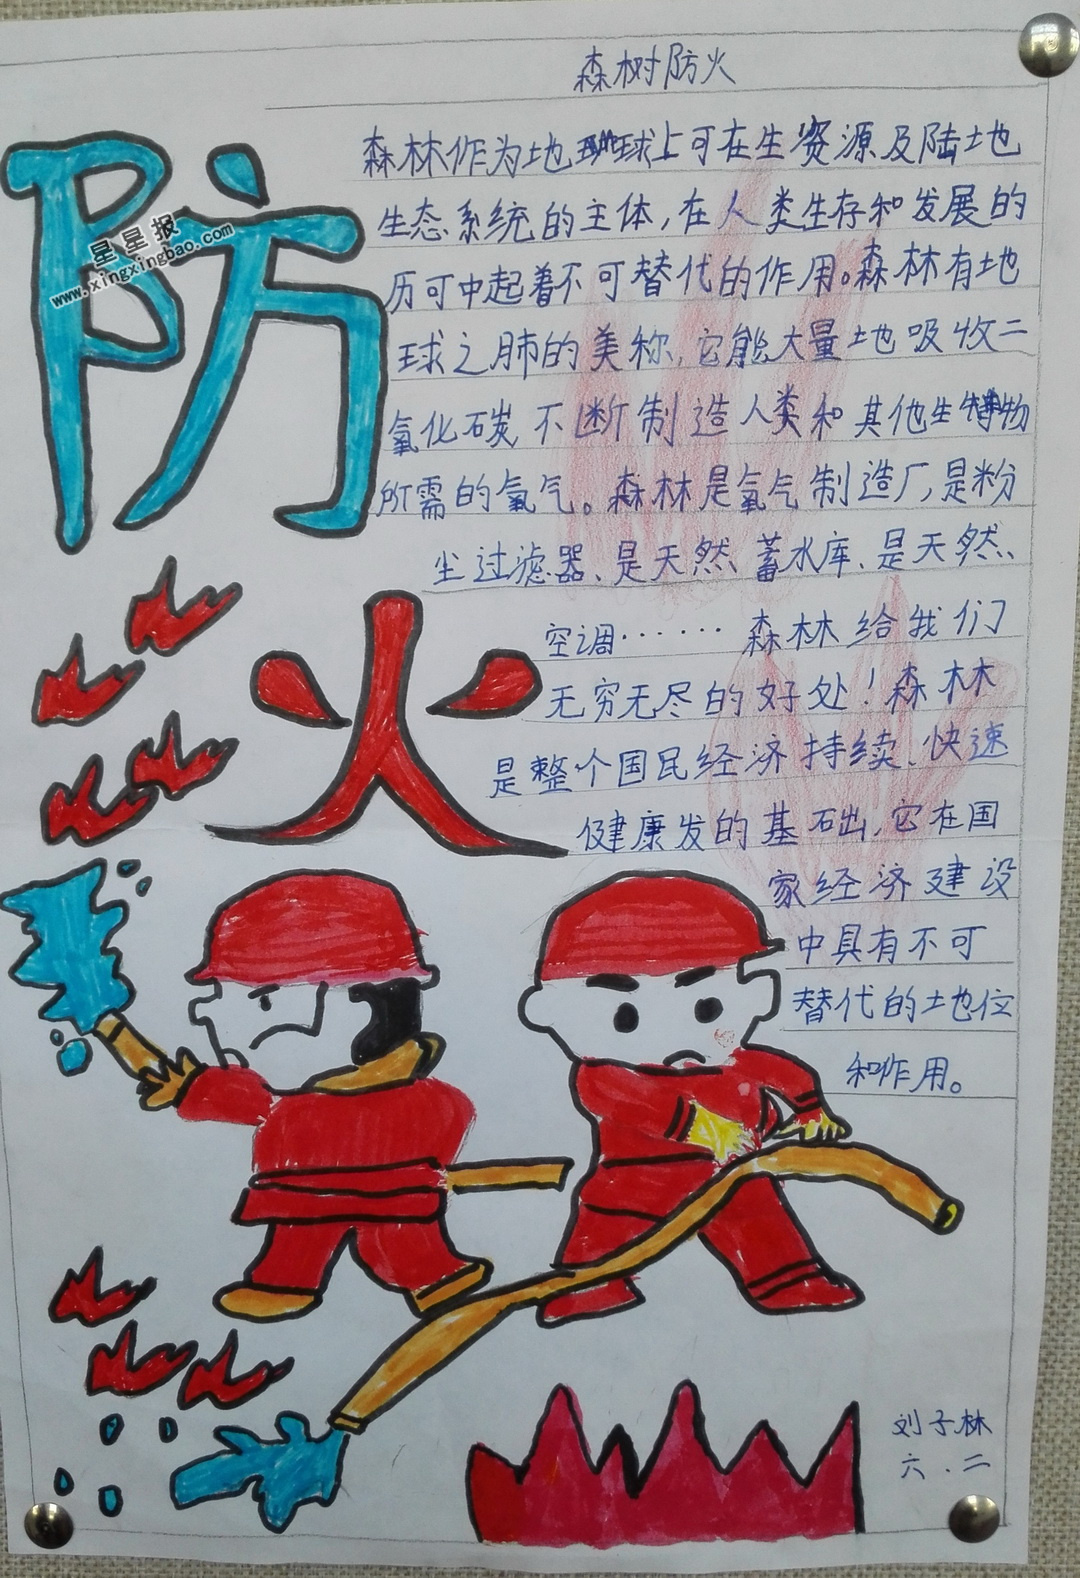 森树防火
防火
星星报
www.xingxingbao.com
森林作为地球上可在生资源及陆地
生态系统的主体,在人类生存和发展的
历可中起着不可替代的作用。森林有地
球之肺的美称,它能大量地吸收二
氧化碳不断制造人类和其他生物
所需的氧气。森林是氧气制造厂,是粉
尘过滤器、是天然蓄水库、是天然、
空调……森林给我们
无穷无尽的好处!森林
是整个国民经济持续、快速
健康发的基础出,它在国
家经济建设
中具有不可
替代的土地位
和作用。
刘子林
六.二